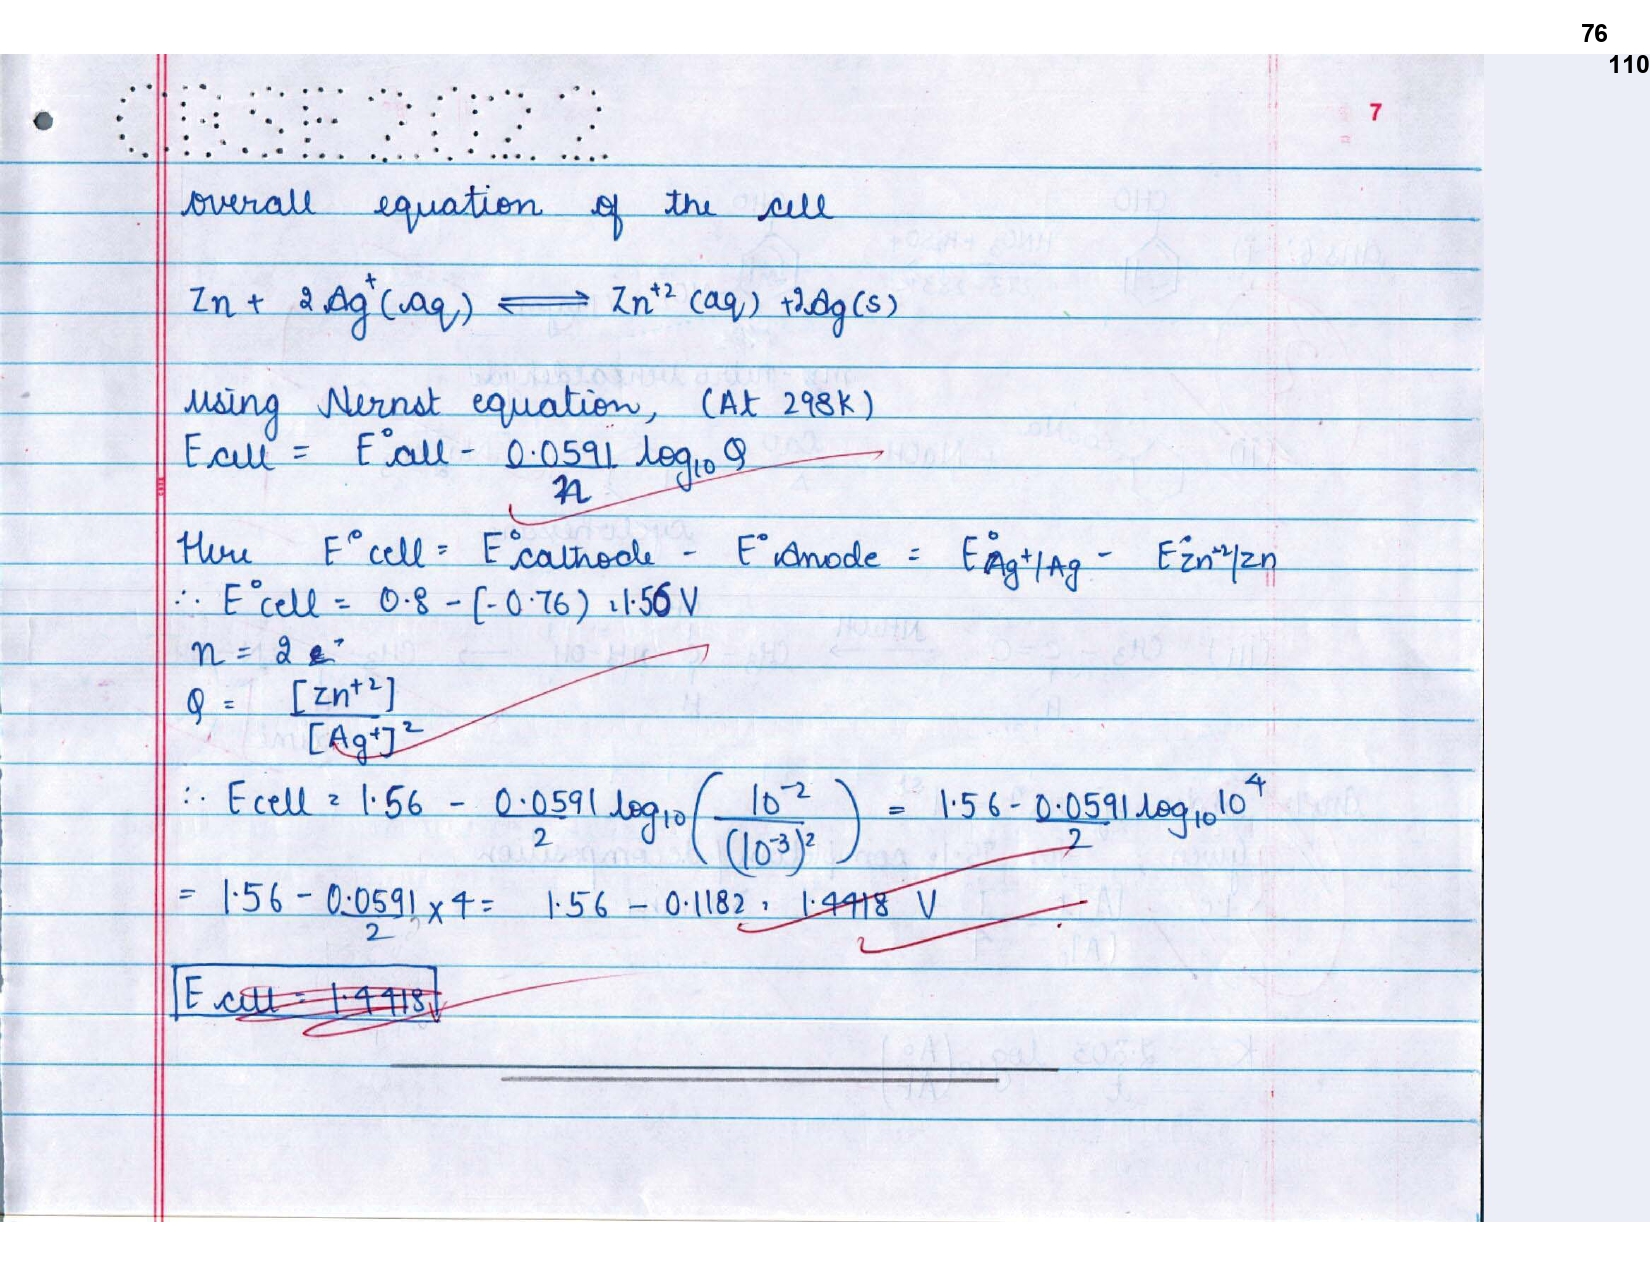 76
110
CBSE 2022
7
overall equation of the cell
Zn + 2Ag⁺(aq) ⇌ Zn⁺²(aq) + 2Ag(s)
using Nernst equation, (At 298K)
Ecell = E°cell - 0.0591/n log₁₀ Q
Here E°cell = E°cathode - E°Anode = E°Ag⁺/Ag - E°Zn⁺²/Zn
∴ E°cell = 0.8 - (-0.76) = 1.56 V
n = 2e⁻
Q = [Zn⁺²]/[Ag⁺]²
∴ Ecell = 1.56 - 0.0591/2 log₁₀(10⁻²/(10⁻³)²) = 1.56 - 0.0591/2 log₁₀10⁴
= 1.56 - 0.0591/2 x 4 = 1.56 - 0.1182 = 1.4418 V
Ecell = 1.4418V